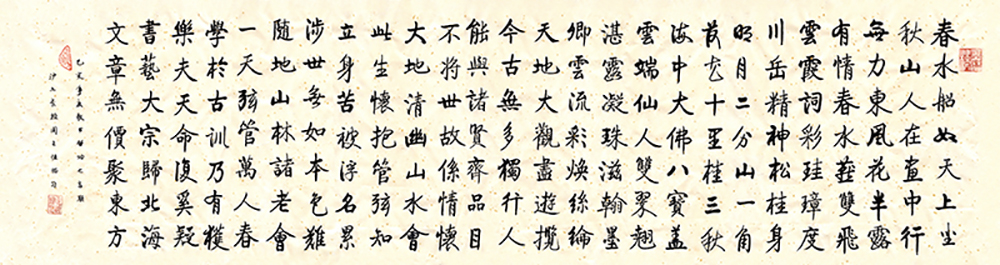 春水船如天上坐
秋山人在畫中行
無力東風花半露
有情春水燕雙飛
雲霞詞彩珪璋度
川岳精神松桂身
明月二分山一角
花十里桂三秋
海中大佛八寶蓋
雲端仙人雙翠翹
湛露凝珠滋翰墨
卿雲流彩煥絲綸
天地大觀盡遊攬
今古無多獨行人
能與諸賢齊品目
不將世故係情懷
大地清幽山水會
此生懷抱管弦知
立身苦被浮名累
涉世無如本色難
隨地山林諸老會
一天弦管萬人春
學於古訓乃有獲
樂夫天命復奚疑
書藝大宗歸北海
文章無價聚東方